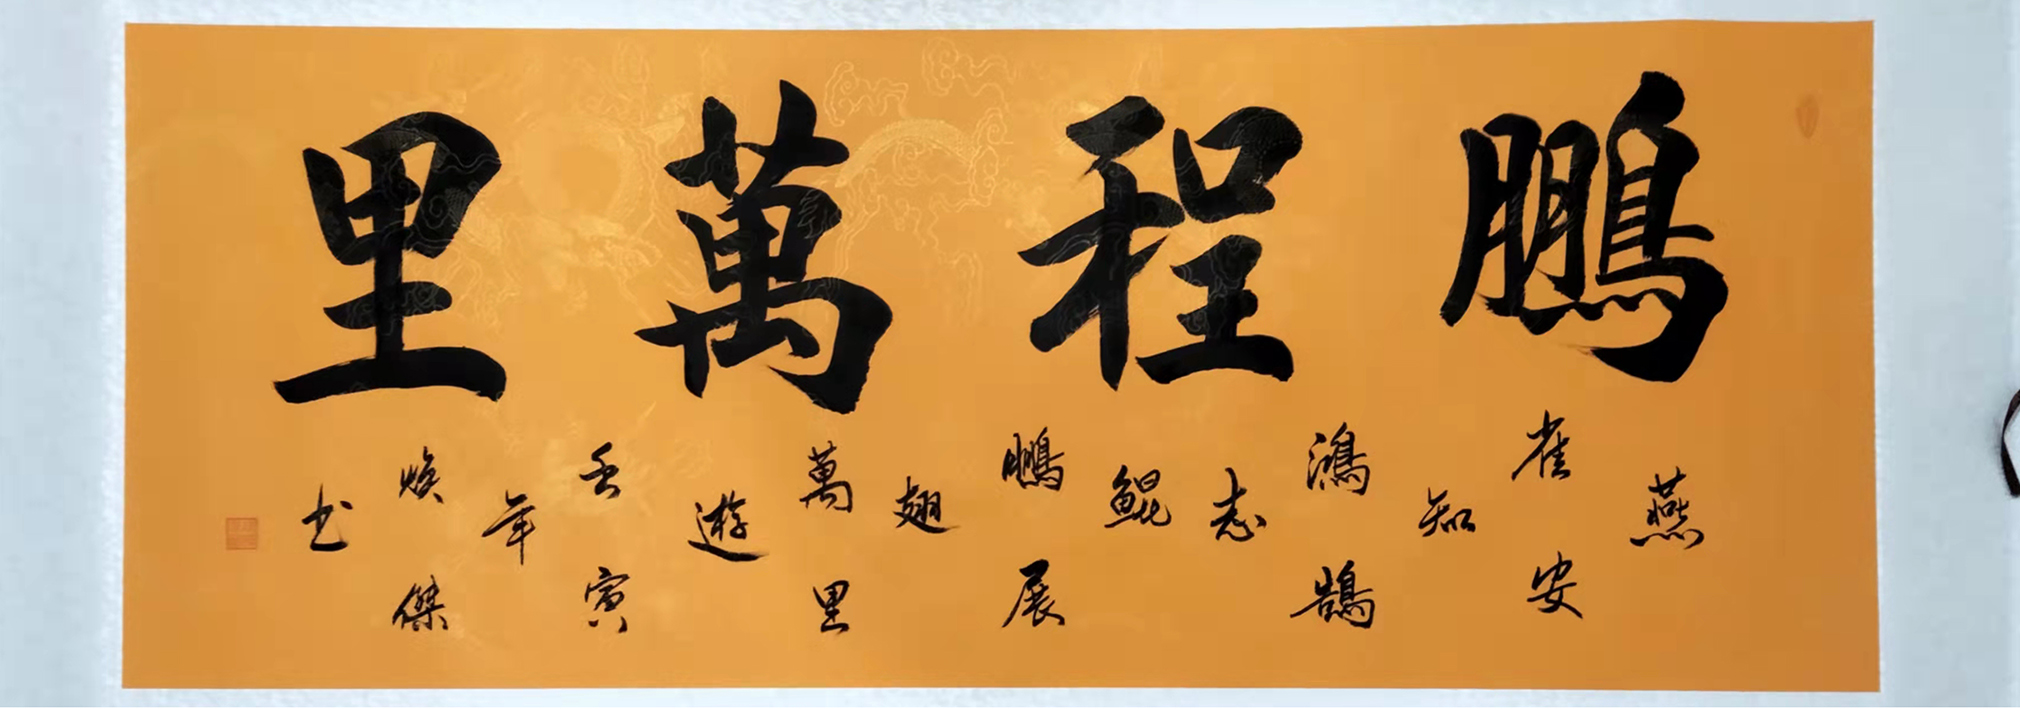 鵬程萬里
燕雀安知鴻鵠志鲲鵬展翅萬里遊壬寅年煥傑书